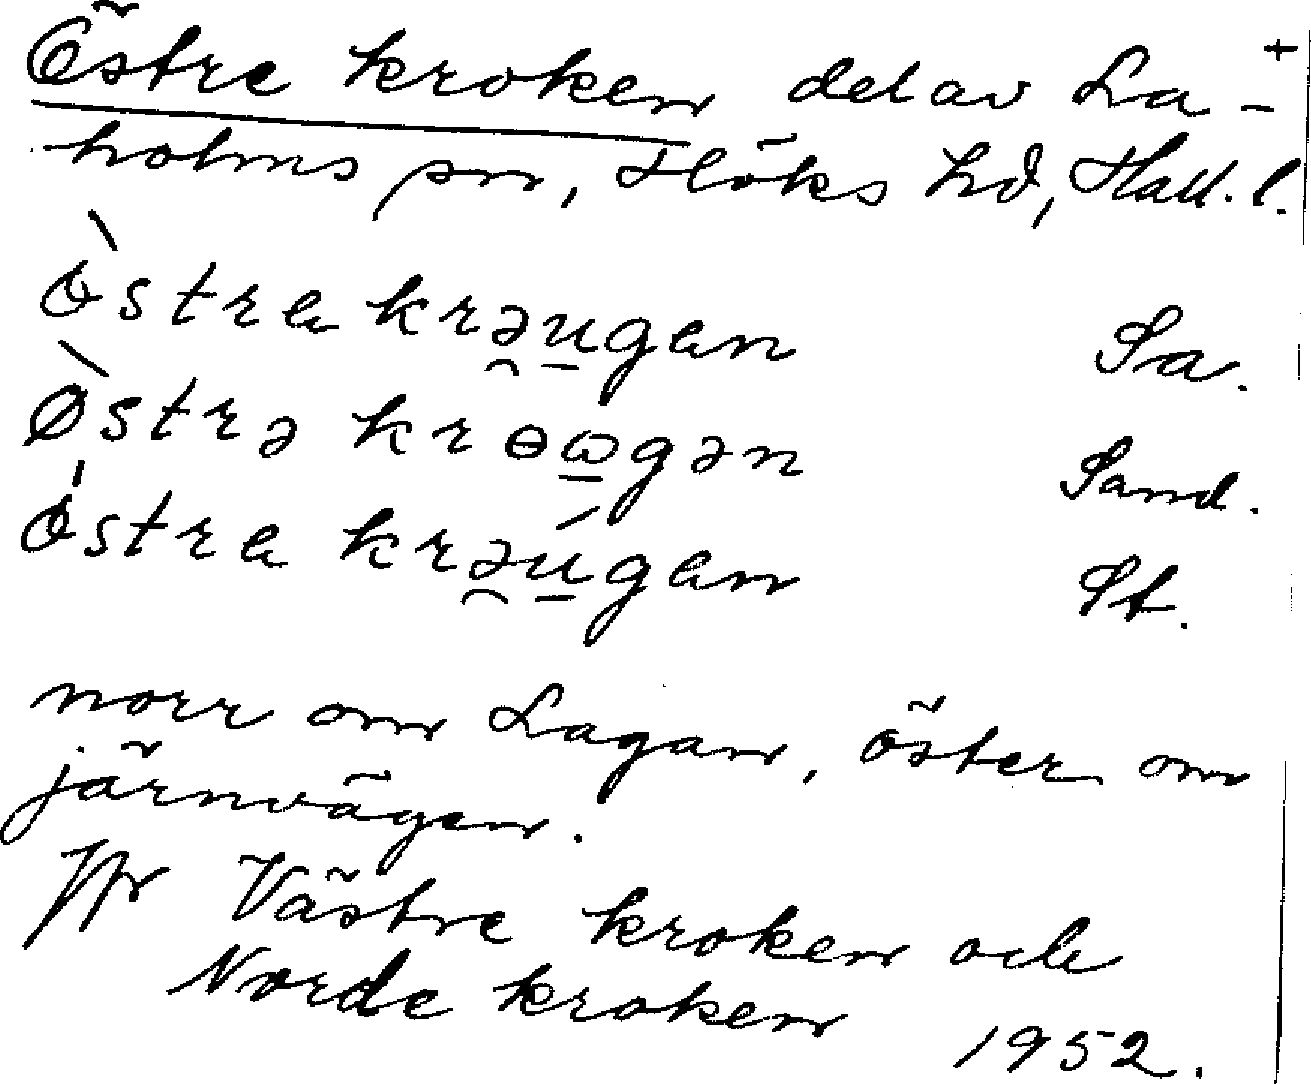 Östre kroken del av La- +
holms sn, Höks hd, Hall. l.
òstra krəu̲gan Sa.
Òstrə krɵɷ̲gən Sand.
óstra krəú̲gan St.
norr om Lagan, öster om
järnvägen.
Jfr Västre kroken och
Norde kroken
1952.